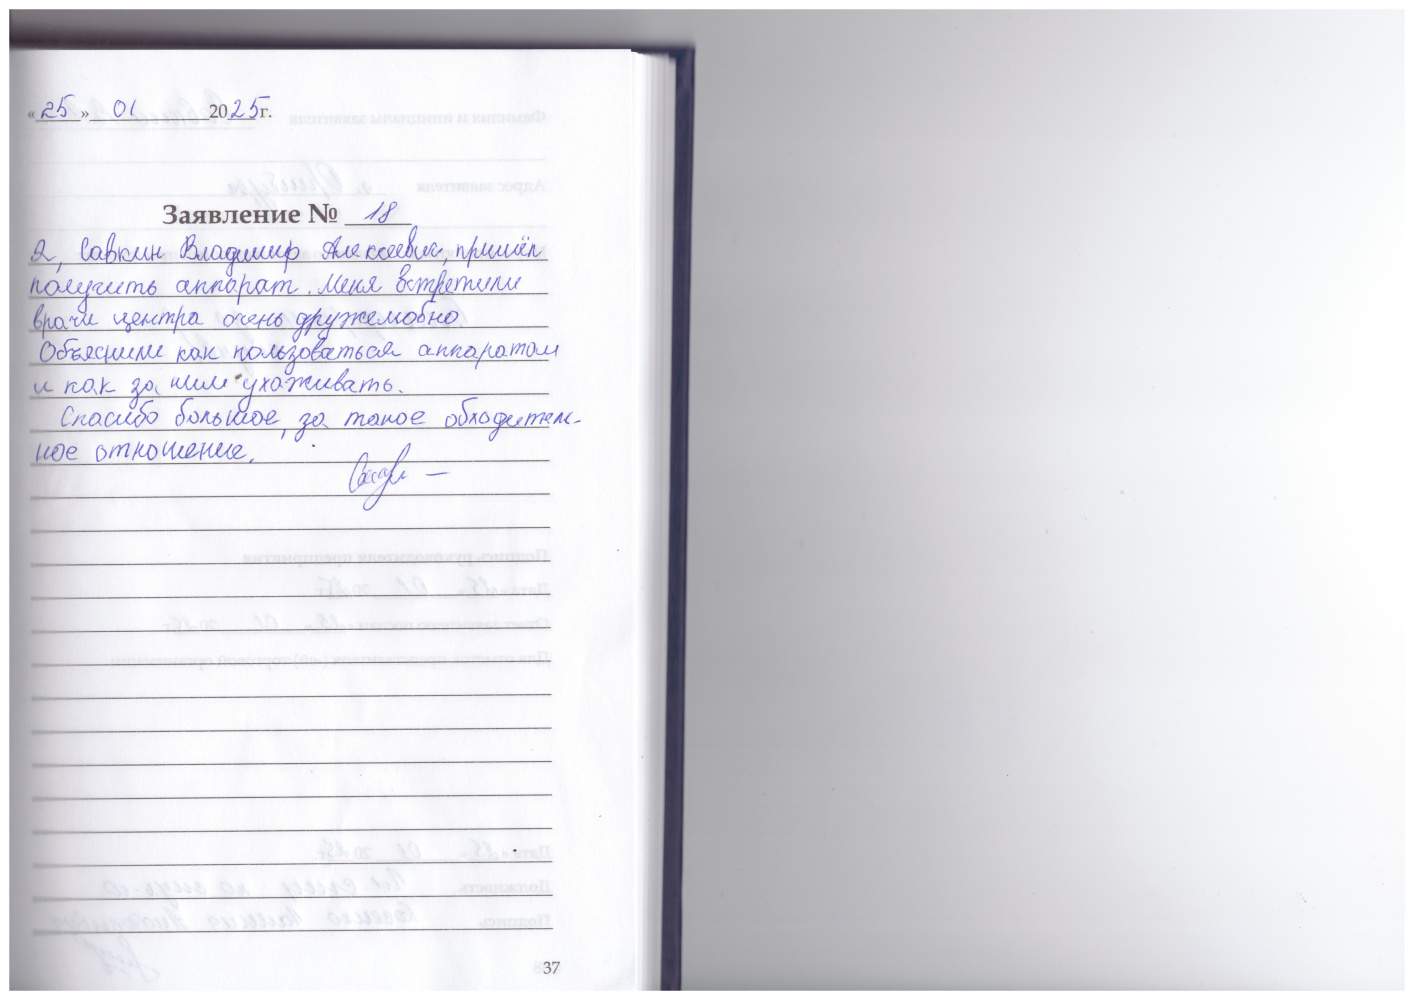 «25» 01 2025г.
Заявление № 18
Я, Савкин Владимир Алексеевич, пришёл
получить аппарат. Меня встретили
врачи центра очень дружелюбно
Объяснили как пользоваться аппаратом
и как за ним ухаживать.
Спасибо большое, за такое обходитель-
ное отношение.
37